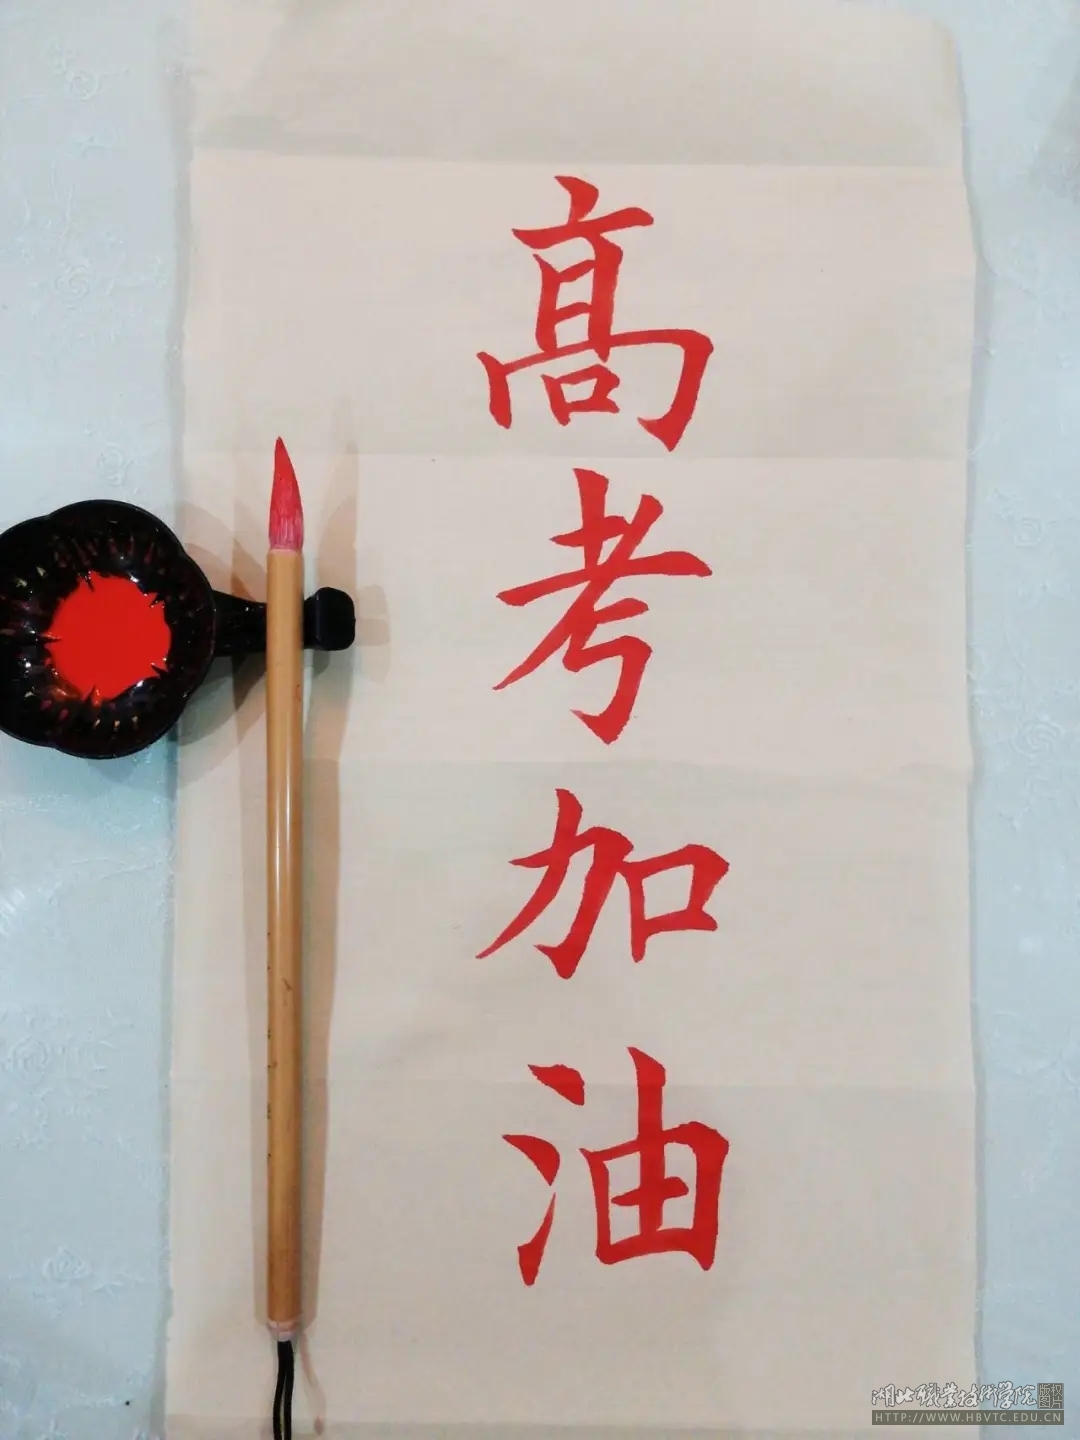 高考加油
湖北職業技术学院
版权图片
HTTP://WWW.HBVTC.EDU.CN